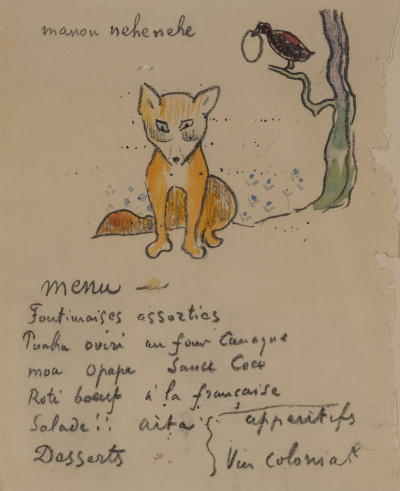 manou nehenehe
menu
Foutimaises assorties
Puaha oviri au four Canaque
moa Opape Sauce Coco
Roti boeuf à la française
Salade!! aita { apperitifs
Desserts { Vin colonial